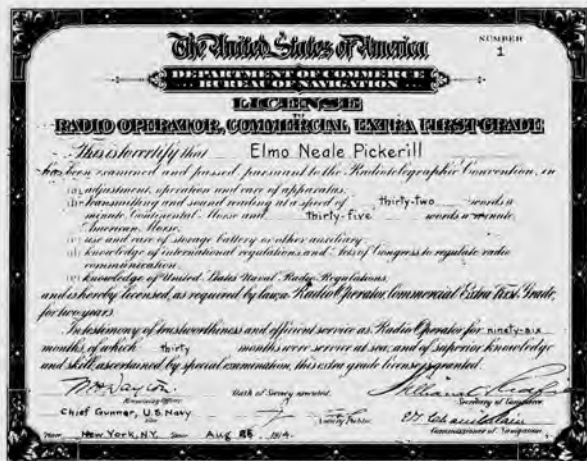 NUMBER
1
The United States of America
DEPARTMENT OF COMMERCE
BUREAU OF NAVIGATION
LICENSE
TO
RADIO OPERATOR, COMMERCIAL EXTRA FIRST GRADE
This is to certify that Elmo Neale Pickerill
has been examined and passed, pursuant to the Radiotelegraphic Convention, in
(a) adjustment, operation and care of apparatus.
(b) transmitting and sound reading at a speed of thirty-two words a
minute Continental Morse and thirty-five words a minute
American Morse.
(c) use and care of storage battery or other auxiliary.
(d) knowledge of international regulations and Acts of Congress to regulate radio
communication.
(e) knowledge of United States Naval Radio Regulations.
and is hereby licensed, as required by law, a Radio Operator, Commercial Extra First Grade,
for two years.
In testimony of trustworthiness and efficient service as Radio Operator for ninety-six
months, of which thirty months were service at sea, and of superior knowledge
and skill, ascertained by special examination, this extra grade license is granted.
Oath of Secrecy executed.
Examining Officer.
Secretary of Commerce.
Chief Gunner, U.S. Navy
Notary Public.
Commissioner of Navigation.
Place New York, N.Y. Date Aug 1914.